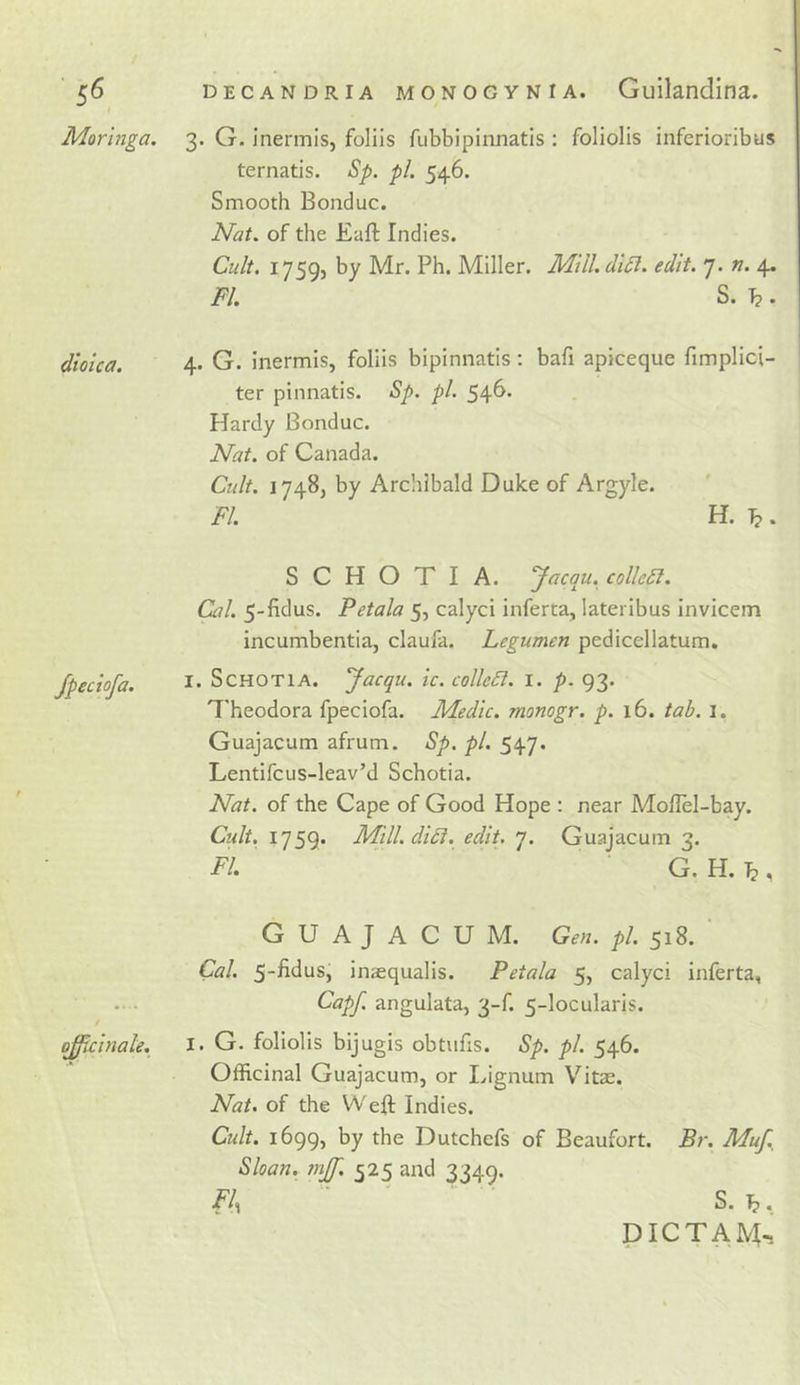 56 DECANDRIA MONOGYNIA. Guilandina.
Moringa. 3. G. inermis, foliis ſubbipinnatis : foliolis inferioribus
ternatis. Sp. pl. 546.
Smooth Bonduc.
Nat. of the Eaſt Indies.
Cult. 1759, by Mr. Ph. Miller. Mill. dict. edit. 7. n. 4.
Fl. S. ♄.
dioica. 4. G. inermis, foliis bipinnatis : baſi apiceque ſimplici-
ter pinnatis. Sp. pl. 546.
Hardy Bonduc.
Nat. of Canada.
Cult. 1748, by Archibald Duke of Argyle.
Fl. H. ♄.
SCHOTIA. Jacqu. collect.
Cal. 5-fidus. Petala 5, calyci inſerta, lateribus invicem
incumbentia, clauſa. Legumen pedicellatum.
ſpecioſa. 1. SCHOTIA. Jacqu. ic. collect. 1. p. 93.
Theodora ſpecioſa. Medic. monogr. p. 16. tab. 1.
Guajacum afrum. Sp. pl. 547.
Lentiſcus-leav'd Schotia.
Nat. of the Cape of Good Hope : near Moſſel-bay.
Cult. 1759. Mill. dict. edit. 7. Guajacum 3.
Fl. G. H. ♄.
GUAJACUM. Gen. pl. 518.
Cal. 5-fidus, inæqualis. Petala 5, calyci inſerta,
Capſ. angulata, 3-ſ. 5-locularis.
officinale. 1. G. foliolis bijugis obtuſis. Sp. pl. 546.
Officinal Guajacum, or Lignum Vitæ.
Nat. of the Weſt Indies.
Cult. 1699, by the Dutcheſs of Beaufort. Br. Muſ.
Sloan. mſſ. 525 and 3349.
Fl. S. ♄.
DICTAM-